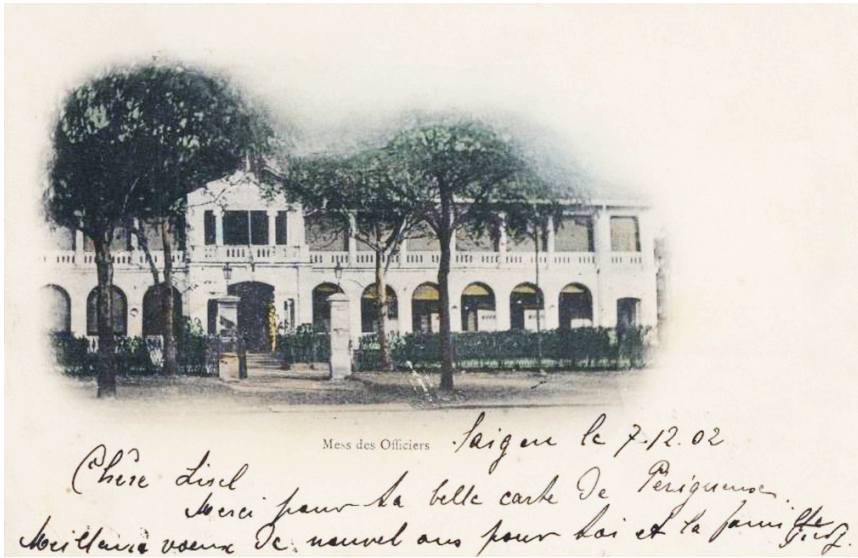 Mess des Officiers
Saigon le 7.12.02
Chère Lisel
Merci pour ta belle carte de Périgueux.
Meilleurs voeux de nouvel ans pour toi et la famille